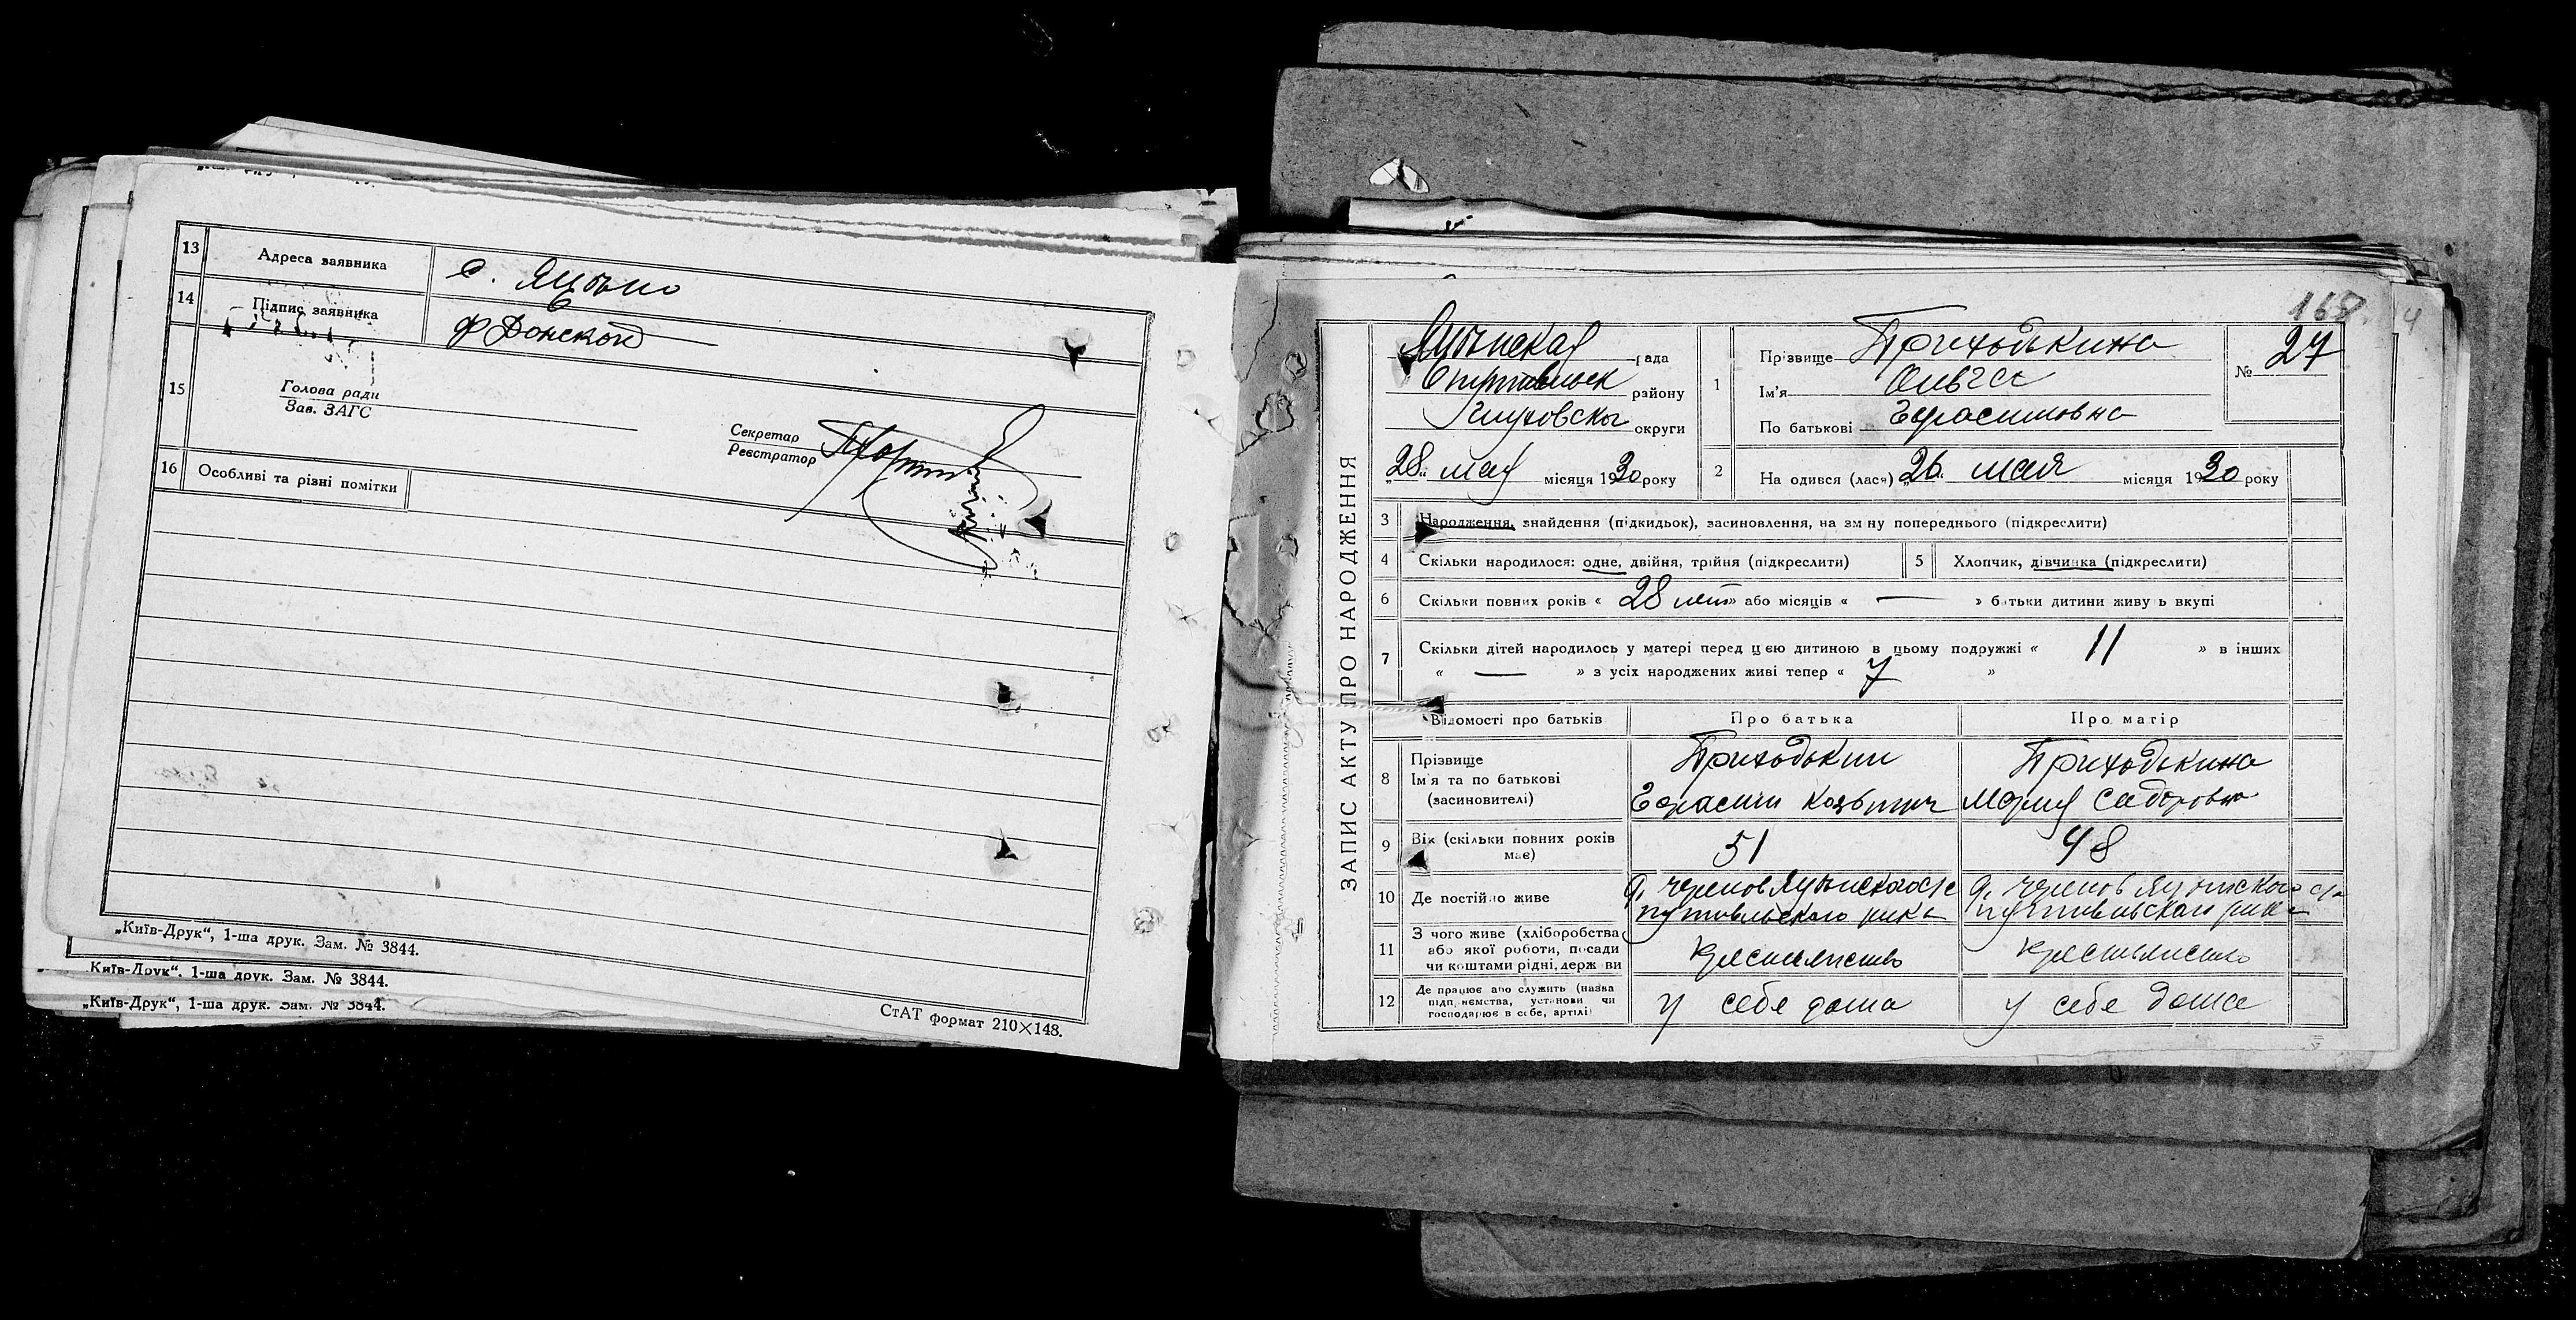 13 Адреса заявника с. Яцыно
14 Підпис заявника Ф Донской
15 Голова ради
Зав. ЗАГС
Секретар
Реєстратор
16 Особливі та різні помітки
„Київ-Друк“, 1-ша друк. Зам. № 3844.
„Київ-Друк“, 1-ша друк. Зам. № 3844.
„Київ-Друк“, 1-ша друк. Зам. № 3844.
СтАТ формат 210×148.
168.
ЗАПИС АКТУ ПРО НАРОДЖЕННЯ
Яцынская рада
Путивльск району
Глуховскы округи
„28“ мая місяця 1930 року
1 Прізвище Приходькина
Ім'я Ольга
По батькові Герасимовна
№ 27
2 На одився (лася) „26“ мая місяця 1930 року
3 Народження, знайдення (підкидьок), засиновлення, на зм ну попереднього (підкреслити)
4 Скільки народилося: одне, двійня, трійня (підкреслити)
5 Хлопчик, дівчинка (підкреслити)
6 Скільки повних років « 28 лет » або місяців « — » батьки дитини живу ь вкупі
7 Скільки дітей народилось у матері перед цією дитиною в цьому подружжі « 11 » в інших
« — » з усіх народжених живі тепер « 7 »
Відомості про батьків Про батька Про матір
8 Прізвище
Ім'я та по батькові
(засиновителі)
Приходькин
Герасим Козьмич
Приходькина
Мария Сидоровна
9 Вік (скільки повних років
має)
51 48
10 Де постійно живе
Яцынского с/с
путивльского рика
Яцынского с/с
путивльского рика
11 З чого живе (хліборобства
або якої роботи, посади
чи коштами рідні, держ ви
крестьянство крестьянство
12 Де працює або служить (назва
підприємства, установи чи
господарює в себе, артілі)
у себе дома у себе дома